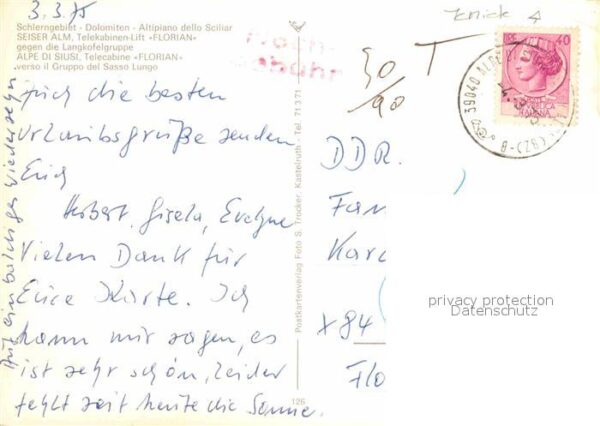 3.3.75
Schlerngebiet - Dolomiten - Altipiano dello Sciliar
SEISER ALM, Telekabinen-Lift «FLORIAN»
gegen die Langkofelgruppe
ALPE DI SIUSI, Telecabine «FLORIAN»
verso il Gruppo del Sasso Lungo
Knick 4
Nach-
gebühr
T
30/90
LIRE 40
39040 ALPE
(BZ) - B
Euch die besten
Urlaubsgrüße senden
Euch
Herbert, Gisela, Evelyne
Vielen Dank für
Eure Karte. Ich
kann nur sagen, es
ist sehr schön, leider
fehlt seit heute die Sonne.
Auf ein baldiges Wiedersehen
Postkartenverlag Foto S. Trocker, Kastelruth - Tel. 71371
126
DDR.
Fam
Karc
x 84
Flo
privacy protection
Datenschutz